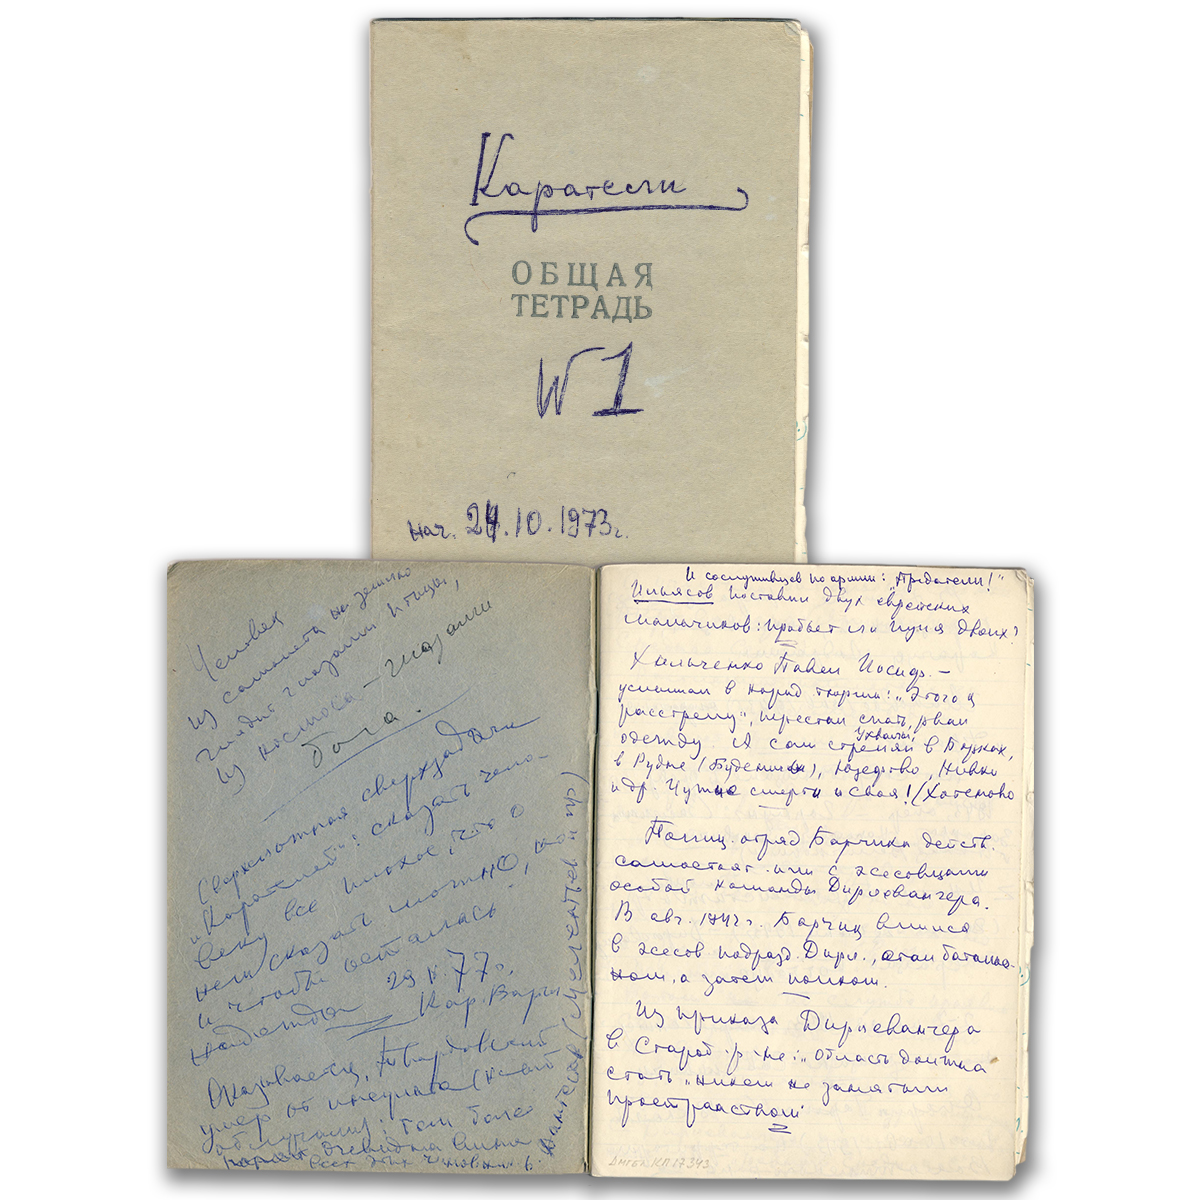 Каратели
ОБЩАЯ
ТЕТРАДЬ
N 1
Нач. 24.10.1973 г.
Человек
из самолета на землю
глядит глазами птицы,
из космоса – глазами
бога.
сверхзадача
"Карателей": сказать чело-
веку все плохое, что о
нем сказать можно, но
и чтобы осталась
надежда 29 77 г.
Кар. Вари
Оказывается, Твардовский
умер от инсульта
облучали): тем более
очевидна вина
всех этих чиновных
И сослуживцев по армии: "Предатели!"
Ильясов поставил двух еврейских
мальчиков: пробьет ли пуля двоих?
Хильченко Павел Иосиф. –
услышал в тюрьме: "Этого к
расстрелу", перестал спать, рвал
одежду. А сам стрелял в Борках,
ухвала
в Рудне
и др. Чужие смерти и своя!
Полиц. отряд Барчика действ.
самостоят. или с эсесовцами
особой команды Дирлевангера.
В авг. 1942 г. Барчик влился
в эсесов подразд. Дирл., стал батальо-
ном, а затем полком.
Из приказа Дирлевангера
в Староб. р-не: "Область должна
стать "никем не занятым
пространством"
КП 17343